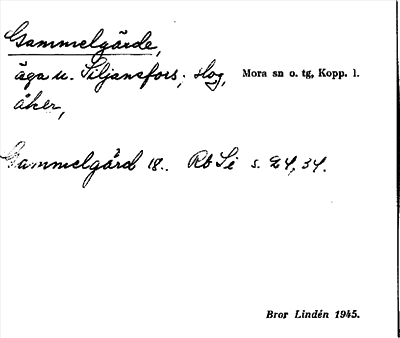 Gammelgärde,
äga u. Siljansfors; skog, Mora sn o. tg, Kopp. l.
åker,
Gammelgård 18.. Rb Si s. 24, 34.
Bror Lindén 1945.